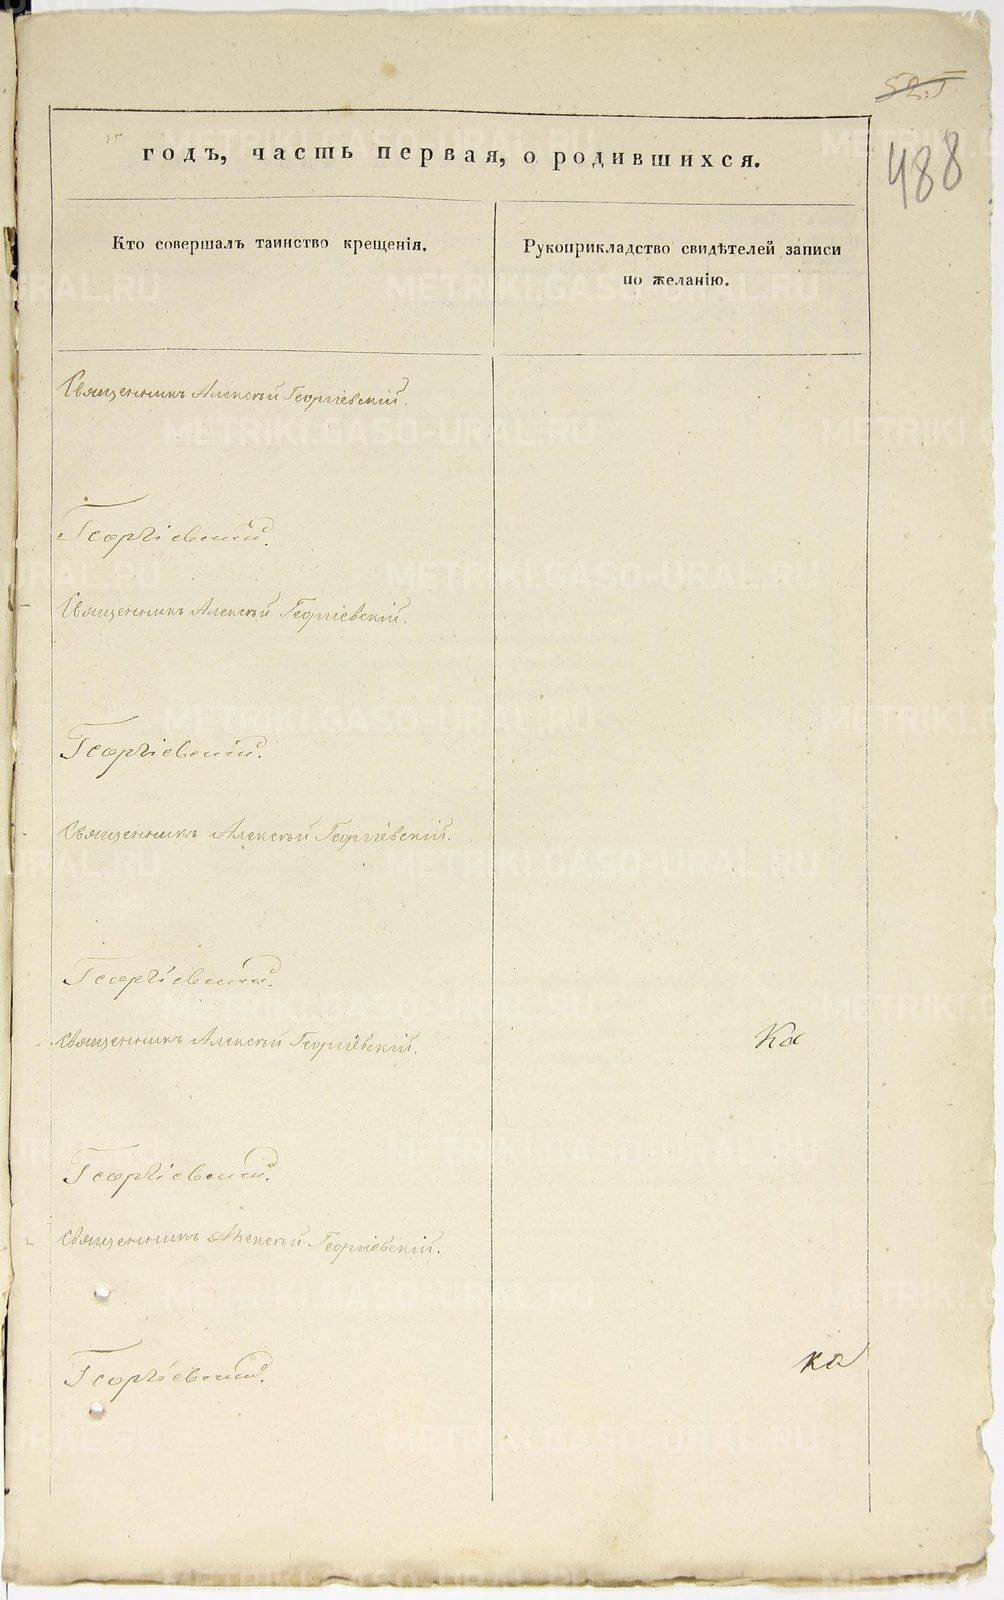 488
годъ, часть первая, о родившихся.
Кто совершалъ таинство крещенія.
Рукоприкладство свидѣтелей записи
по желанію.
Священникъ Алексѣй Георгіевскій.
Георгіевскій.
Священникъ Алексѣй Георгіевскій.
Георгіевскій.
Священникъ Алексѣй Георгіевскій.
Георгіевскій.
Священникъ Алексѣй Георгіевскій.
Ка
Георгіевскій.
Священникъ Алексѣй Георгіевскій.
Георгіевскій.
ка
METRIKI.GASO-URAL.RU